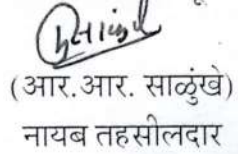 (आर.आर. साळुंखे)
नायब तहसीलदार